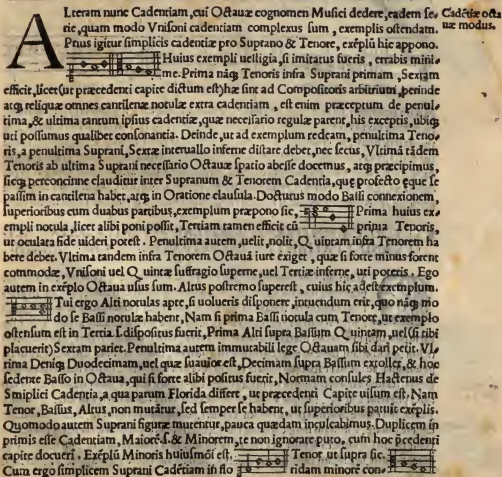 ALteram nunc Cadentiam, cui Octauæ cognomen Musici dedere, eadem se⸗
rie, quam modo Vnisoni cadentiam complexus sum, exemplis ostendam.
Cadẽtiæ octa
uæ modus.
Prius igitur simplicis cadentiæ pro Soprano & Tenore, exẽplũ hic appono.
Huius exempli uestigia, si imitatus fueris, errabis mini⸗
me. Prima nãq; Tenoris infra Suprani primam, Sextam
efficit, licet (ut præcedenti capite dictum est) hæ sint ad Compositoris arbitrium, perinde
atq; reliquæ omnes cantilenæ notulæ extra cadentiam, est enim præceptum de penul⸗
tima, & ultima tantum ipsius cadentiæ, quæ necessario regulæ parent, his exceptis, ubiq;
uti possumus qualibet consonantia. Deinde, ut ad exemplum redeam, penultima Teno⸗
ris, a penultima Suprani, Sextæ interuallo inferne distare debet, nec secus, Vltimã tãdem
Tenoris ab ultima Suprani necessario Octauæ spatio abesse docemus, atq; præcipimus,
sicq; perconcinne clauditur inter Supranum & Tenorem Cadentia, que profecto eque se
passim in cantilena habet, atq; in Oratione clausula. Docturus modo Bassi connexionem,
superioribus cum duabus partibus, exemplum præpono sic, Prima huius ex⸗
empli notula, licet alibi poni possit, Tertiam tamen efficit cũ prima Tenoris,
ut oculata fide uideri potest. Penultima autem, uelit, nolit, Quintam infra Tenorem ha
bere debet. Vltima tandem infra Tenorem Octauã iure exiget, quæ si forte minus forent
commodæ, Vnisoni uel Quintæ suffragio superne, uel Tertiæ inferne, uti poteris. Ego
autem in exẽplo Octaua usus sum. Altus postremo superest, cuius hic adest exemplum.
Tui ergo Alti notulas apte, si uolueris disponere, intuendum erit, quo nãq; mo
do se Bassi notulæ habent, Nam si prima Bassi notula cum Tenore, ut exemplo
ostensum est in Tertia .s. dispositus fuerit, Prima Alti supra Bassum Quintam, uel (si tibi
placuerit) Sextam pariet. Penultima autem immutabili lege Octauam sibi dari petit. Vl⸗
tima Deniq; Duodecimam, uel quæ suauior est, Decimam supra Bassum extollet, & hoc
sedente Basso in Octaua, qui si forte alibi positus fuerit, Normam consules Hactenus de
Simplici Cadentia, a qua parum Florida differt, ut præcedenti Capite uisum est, Nam
Tenor, Bassus, Altus, non mutãtur, sed semper se habent, ut superioribus patuit exẽplis.
Quomodo autem Suprani figuræ mutentur, pauca quædam inculcabimus. Duplicem in
primis esse Cadentiam, Maiorẽ .s. & Minorem, te non ignorare puto, cum hoc p̃cedenti
capite docueri. Exẽplũ Minoris huiusmõi est. Tenor ut supra sic.
Cum ergo simplicem Suprani Cadẽtiam in flo ridam minorẽ con⸗